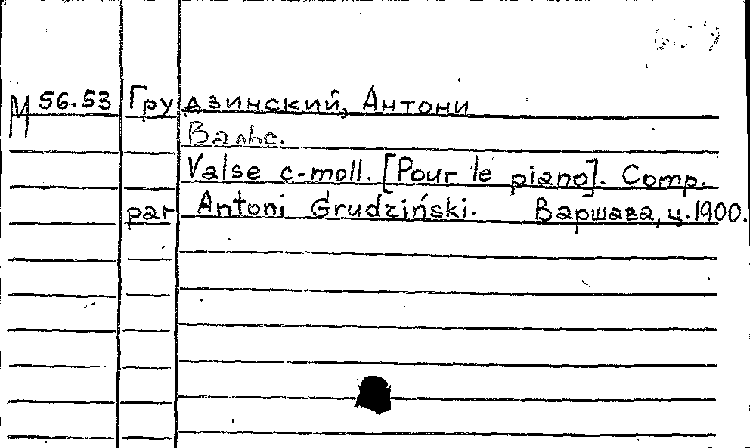 М 56.53 Грудзинский, Антони
Вальс.
Valse c-moll. [Pour le piano]. Comp.
par Antoni Grudziński. Варшава, ц. 1900.